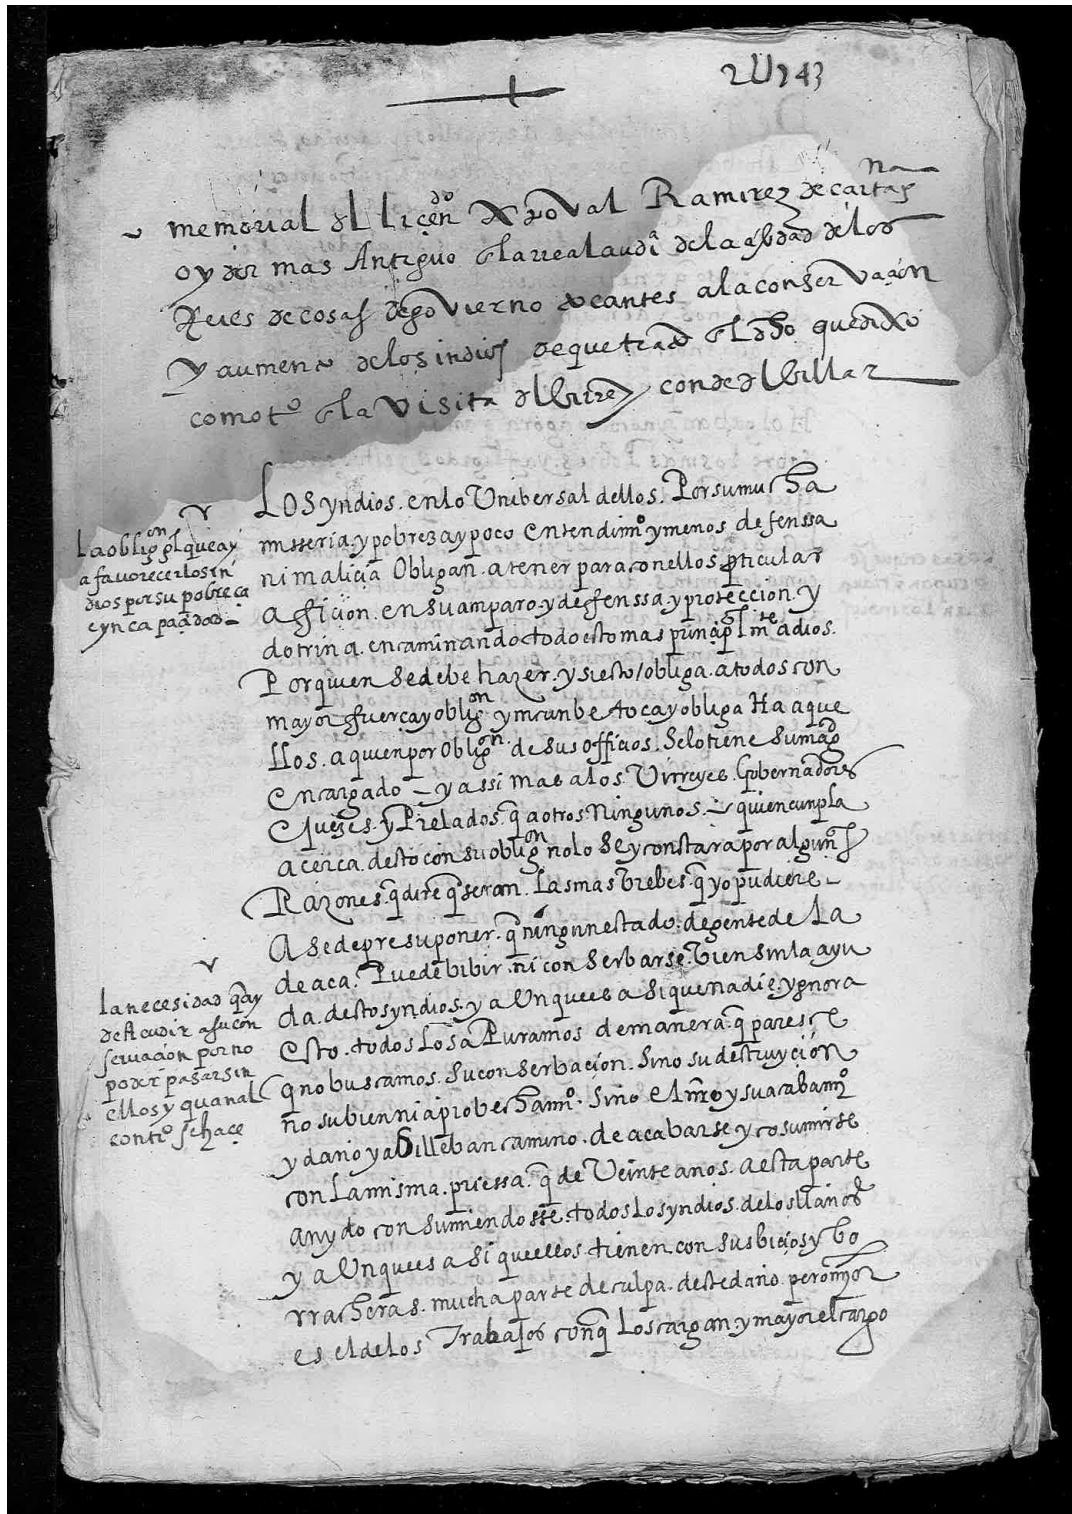 2U743
memorial dl licen^do Xpoval Ramirez de cartag^na
oydor mas Antiguo dla real audi^a de la cibdad de los
Reies de cosas de govierno tocantes a la conservaçion
y aumento de los indios de que trato dl dho que dixo
como t^o dla Visita dl Virrey conde dl Villar
la oblig^on gl que ay
a favorecer los in
dios por su pobreça
e yncapacidad
Los yndios. en lo Unibersal dellos. Por su mucha
misseria. y pobreza y poco entendim^o y menos. defenssa
ni maliçia Obligan. a tener para con ellos particular
affiçion. en su amparo. y deffenssa. y proteccion. y
dotrina. encaminando todo esto mas prinçipalm^te a dios.
Por quien se debe hazer. y si esto / obliga. a todos con
mayor fuerça y oblig^on y mcunbe toca y obliga Ha aque
llos. a quien por oblig^on de sus officios. Se lo tiene su mag^d
encargado – y assi mas a los. Virreyes. Gobernadores
e Juezes. y Prelados. q a otros Ningunos. – quien cunpla
acerca. desto con su oblig^on no lo se y constara por algunos
Razones. q dire q seran. Las mas brebes. q yo pudiere –
la necesidad q ay
de Acudir a su con
servaçion por no
poder pasar sin
ellos y qua nal
contr^o se haçe
A se de presuponer. q ningun estado. de gente de La
de aca. Puede bibir. ni conserbarse. bien sin la ayu
da. destos yndios. y aUnque es asi que nadie. ygnora
esto. todos Los aPuramos de manera. q paresçe
q no buscamos. su conserbaçion. Sino su destruyçion
no su bien ni aprobecham^o. Sino el nro y su acabam^o
y daño y a si lleban camino. de acabarse y cosumirse
con La misma. priessa. q de Veinte años. a esta parte
an ydo consumiendosse. todos Los yndios. de los llanos
y aUnque es asi que ellos. tienen con sus biçios y bo
rracheras. mucha parte de culpa. deste daño. pero mayor
es el de los Trabajos con q Los cargan. y mayor el cargo